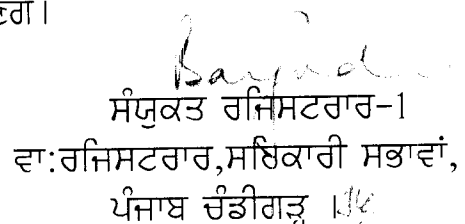 ਸੰਯੁਕਤ ਰਜਿਸਟਰਾਰ-1
ਵਾ:ਰਜਿਸਟਰਾਰ,ਸਹਿਕਾਰੀ ਸਭਾਵਾਂ,
ਪੰਜਾਬ ਚੰਡੀਗੜ੍ਹ ।